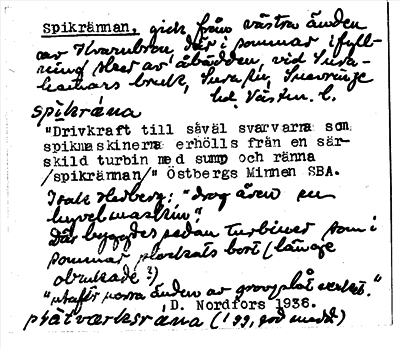 Spikrännan, gick från västra änden
av Kvarnbron, där i sommar ifyll-
ning sker av åbädden, vid Sura-
hammars bruk, Sura sn, Snevringe
hd. Västm. l.
spikrána
"Drivkraft till såväl svarvarna som
spikmaskinerna erhölls från en sär-
skild turbin med sump och ränna
/spikrännan/" Östbergs Minnen SBA.
Isak Hedberg: "drog även en
hyvelmaskin".
Där byggdes sedan turbiner som i
sommar plockats bort (länge
obrukade?)
"utefter norra änden av grovplåtverket."
D. Nordfors 1936.
plåtvärksrána (